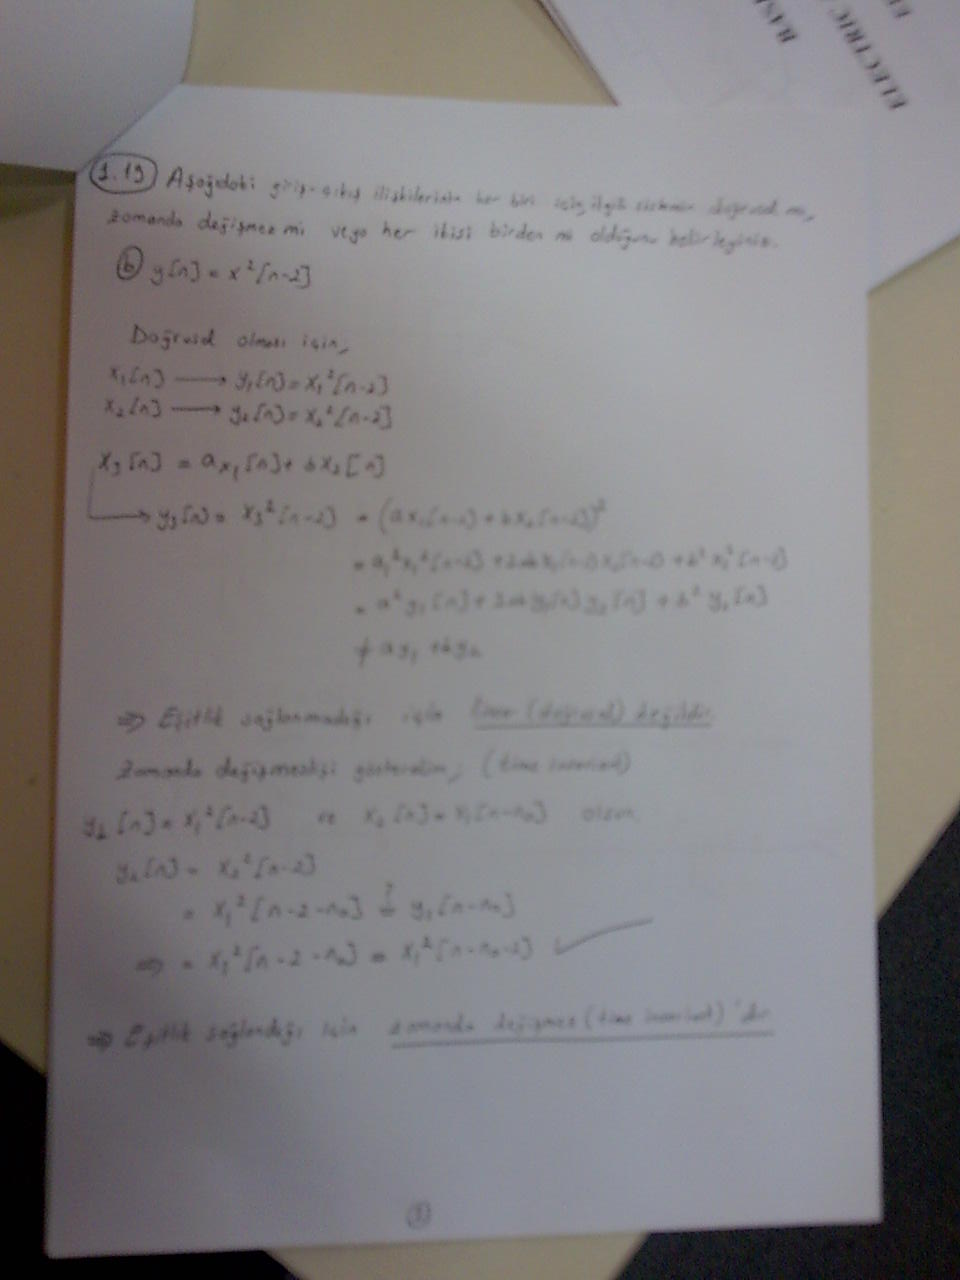 BASI
ELECTRIC
EL
1.19 Aşağıdaki giriş-çıkış ilişkilerinin her biri için ilgili sistemin doğrusal mı,
zamanda değişmez mi veya her ikisi birden mi olduğunu belirleyiniz.
b y[n] = x²[n-2]
Doğrusal olması için,
x₁[n] → y₁[n] = x₁²[n-2]
x₂[n] → y₂[n] = x₂²[n-2]
x₃[n] = ax₁[n] + bx₂[n]
→ y₃[n] = x₃²[n-2] = (ax₁[n-2] + bx₂[n-2])²
= a²x₁²[n-2] + 2abx₁[n-2]x₂[n-2] + b²x₂²[n-2]
= a²y₁[n] + 2aby₁[n]y₂[n] + b²y₂[n]
≠ ay₁ + by₂
⇒ Eşitlik sağlanmadığı için lineer (doğrusal) değildir.
Zamanda değişmezliği gösterelim; (time invariant)
y₁[n] = x₁²[n-2] ve x₂[n] = x₁[n-n₀] olsun.
y₂[n] = x₂²[n-2]
= x₁²[n-2-n₀] ≟ y₁[n-n₀]
⇒ = x₁²[n-2-n₀] = x₁²[n-n₀-2] ✓
⇒ Eşitlik sağlandığı için zamanda değişmez (time invariant)'dır.